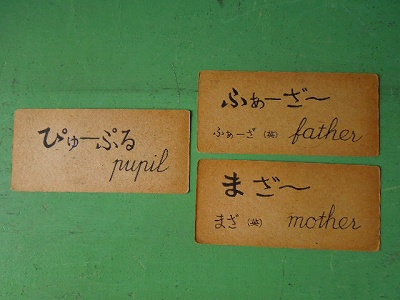 ぴゅーぷる
pupil
ふぁーざ〜
ふぁーざ (英) father
まざ〜
まざ (英) mother